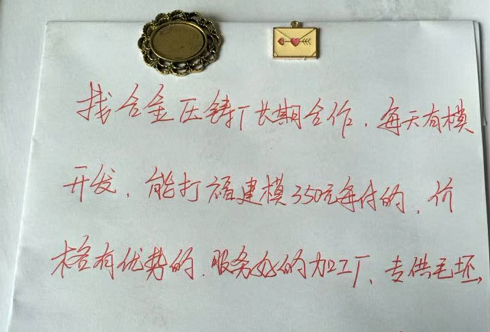 找合金压铸厂长期合作，每天有模
开发，能打福建模350元每付的，价
格有优势的，服务好的加工厂、专供毛坯，